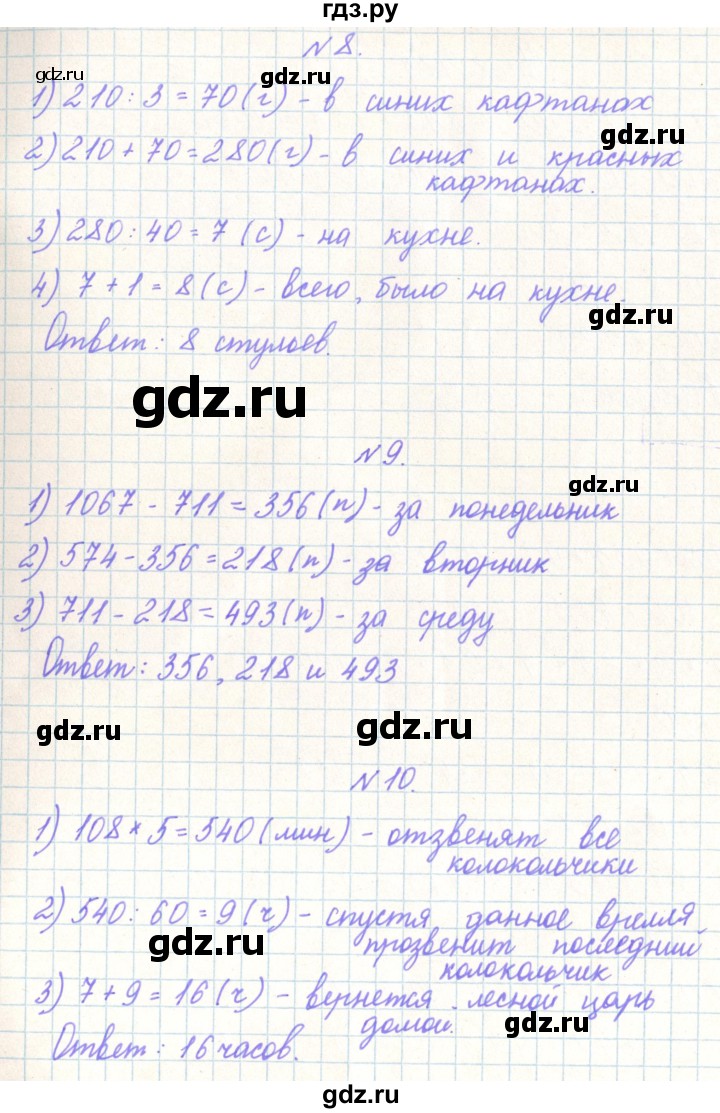 гдз.ру
№8.
gdz.ru
gdz.ru
1) 210 : 3 = 70 (г) - в синих кафтанах
gdz.ru
2) 210 + 70 = 280 (г) - в синих и красных
кафтанах.
3) 280 : 40 = 7 (с) - на кухне.
4) 7 + 1 = 8 (с) - всего, было на кухне.
gdz.ru
Ответ: 8 стульев.
gdz.ru
№9.
gdz.ru
1) 1067 - 711 = 356 (п) - за понедельник
2) 574 - 356 = 218 (п) - за вторник
3) 711 - 218 = 493 (п) - за среду
Ответ: 356, 218 и 493
gdz.ru
gdz.ru
№10.
1) 108 × 5 = 540 (мин) - отзвенят все
колокольчики
2) 540 : 60 = 9 (ч) - спустя данное время
gdz.ru
прозвенит последний
колокольчик
3) 7 + 9 = 16 (ч) - вернется лесной царь
домой.
gdz.ru
Ответ: 16 часов.
gdz.ru